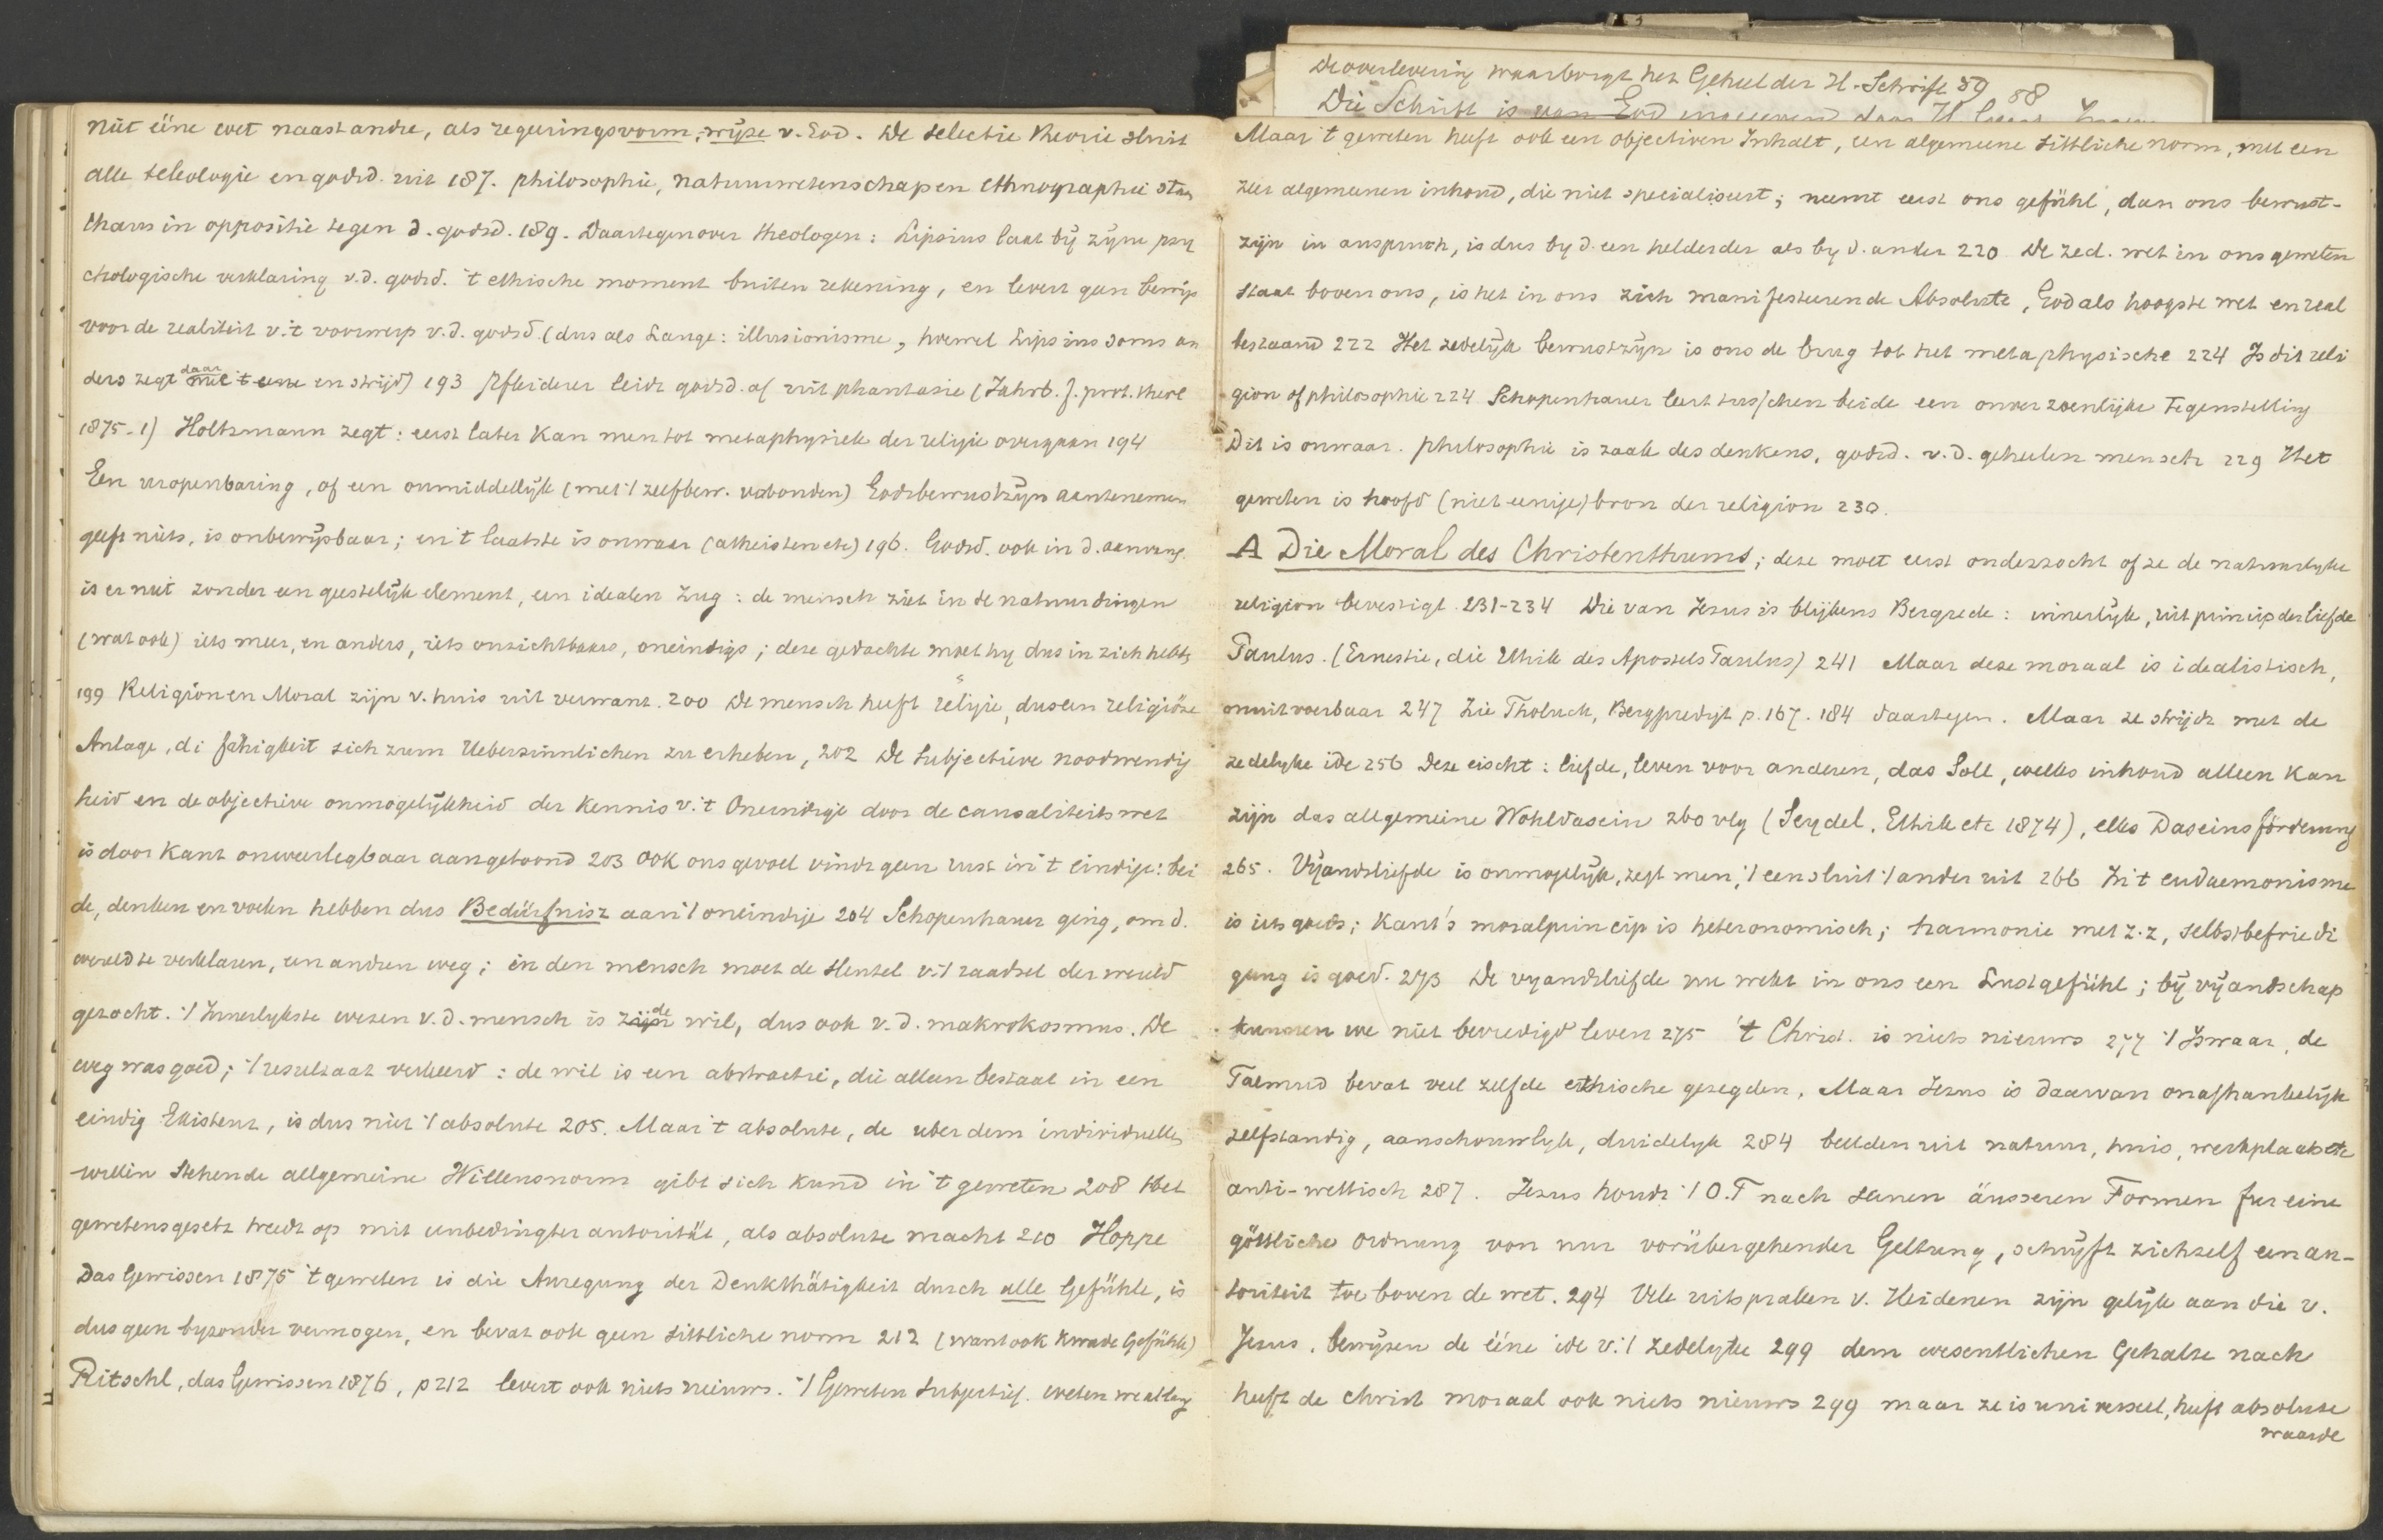 niet ééne wet naast andre, als regeeringsvorm, -wijze v. God. De selectie theorie sluit
alle teleologie en godsd. uit 187. philosophie, natuurwetenschapen ethnographie staan
thans in oppositie tegen d. godsd. 189. Daartegenover theologen: Lipsius laat bij zijne psy
chologische verklaring v.d. godsd. 't ethische moment buiten rekening, en levert geen bewijs
voor de realiteit v. 't voorwerp v.d. godsd (dus als Lange: illusionisme, hoewel Lipsius soms an
ders zegt daar mee in strijd) 193 Pfleiderer leidt godsd. af uit phantasie (Jahrb. f. prot. theol
1875-1) Holtzmann zegt: eerst later kan men tot metaphysiek der religie overgaan 194
Een uropenbaring, of een onmiddellijk (met 't zelfbew. verbonden) Godsbewustzijn aantenemen
geeft niets, is onbewijsbaar; en 't laatste is onwaar (atheisten etc) 196. Godsd. ook in d. aanvang
is er niet zonder een geestelijk element, een idealen Zug: de mensch ziet in de natuurdingen
(wat ook) iets meer, en anders, iets onzichtbaars, oneindigs; deze gedachte moet hy dus in zich hebben
199 Religion en Moral zijn v. huis uit verwant. 200 De mensch heeft religie, dus een religiöse
Anlage, di fähigkeit sich zum Uebersinnlichen zu erheben, 202 De subjectieve noodwendig
heid en de objectieve onmogelijkheid der kennis v. 't Oneindige door de causaliteitswet
is door Kant onweerlegbaar aangetoond 203 ook ons gevoel vindt geen rust in 't eindige: bei
de, denken en voelen hebben dus Bedürfnisz aan 't oneindige 204 Schopenhauer ging, om d.
wereld te verklaren, een andren weg; in den mensch moet de sleutel v. 't raadsel der wereld
gezocht. 't Innerlykste wezen v.d. mensch is zijn de wil, dus ook v.d. makrokosmus. De
weg was goed; 't resultaat verkeerd: de wil is een abstractie, die alleen bestaat in een
eindig Existenz, is dus niet 't absolute 205. Maar 't absolute, de uber dem individuellen
willen stehende allgemeine Willensnorm gibt sich kund in 't geweten 208 Het
gewetensgesetz treedt op mit unbedingter autorität, als absolute macht 210 Hoppe
Das Gewissen 1875 't geweten is die Anregung der Denkthätigkeit durch alle Gefühle, is
dus geen byzonder vermogen, en bevat ook geen sittliche norm 212 (want ook kwade Gefühle)
Ritschl, das Gewissen 1876, p 212 levert ook niets nieuws. 't Geweten subjectief. weten we allang
De overlevering waarborgt het Geheel der H. Schrift 59 58
Die Schrift is van God
Maar 't geweten heeft ook een objectiven Inhalt, een algemeene sittliche norm, met een
zeer algemeenen inhoud, die niet specialiseert; neemt eerst ons gefühl, dan ons bewust-
zijn in anspruch, is dus by d. een helderder als by d. ander 220 De zed. wet in ons geweten
staat boven ons, is het in ons zich manifesteerende Absolute, God als hoogste wet en real
bestaand 222 Het zedelijk bewustzijn is ons de brug tot het metaphysische 224 Is dit reli
gion of philosophie 224 Schopenhauer leert tusschen beide een onverzoenlijke tegenstelling
Dit is onwaar. philosophie is zaak des denkens, godsd. v.d. geheelen mensch 229 Het
geweten is hoofd (niet eenige) bron der religion 230.
A Die Moral des Christenthums; deze moet eerst onderzocht of ze de natuurlyke
religion bevestigt 231-234 Die van Jezus is blijkens Bergrede: innerlijk, uit princip der liefde
Paulus. (Ernestie, die Ethik des Apostels Paulus) 241 Maar deze moraal is idealistisch,
onuitvoerbaar 247 Zie Tholuck, Bergpredigt p. 167. 184 daartegen. Maar ze strijdt met de
zedelyke ide 256 Deze eischt: liefde, leven voor anderen, das Soll, welks inhoud alleen kan
zijn das allgemeine Wohldasein 260 vlg (Seydel, Ethik etc 1874), elks Daseinsförderung
265. Vijandsliefde is onmogelijk, zegt men, 't een sluit 't ander uit 266 In 't eudaemonisme
is iets goeds; Kant's moralprincip is heteronomisch; harmonie met z.z, selbstbefriedi
gung is goed. 273 De vyandsliefde nu wekt in ons een Lustgefühl; bij vijandschap
kunnen we niet bevredigd leven 275 't Christ. is niets nieuws 277 't Is waar, de
Talmud bevat veel zelfde ethische gezegden, Maar Jezus is daarvan onafhankelijk
zelfstandig, aanschouwlyk, duidelyk 284 beelden uit natuur, huis, werkplaats etc
anti-wettisch 287. Jezus houdt 't O.T nach seinen äusseren Formen fur eine
göttliche ordnung von nur vorübergehender Geltung, schrijft zichzelf een au-
toriteit toe boven de wet. 294 Vele uitspraken v. Heidenen zijn gelijk aan die v.
Jezus, bewijzen de ééne ide v. 't zedelyke 299 dem wesentlichen Gehalte nach
heeft de christ moraal ook niets nieuws 299 maar ze is universeel, heeft absolute
waarde